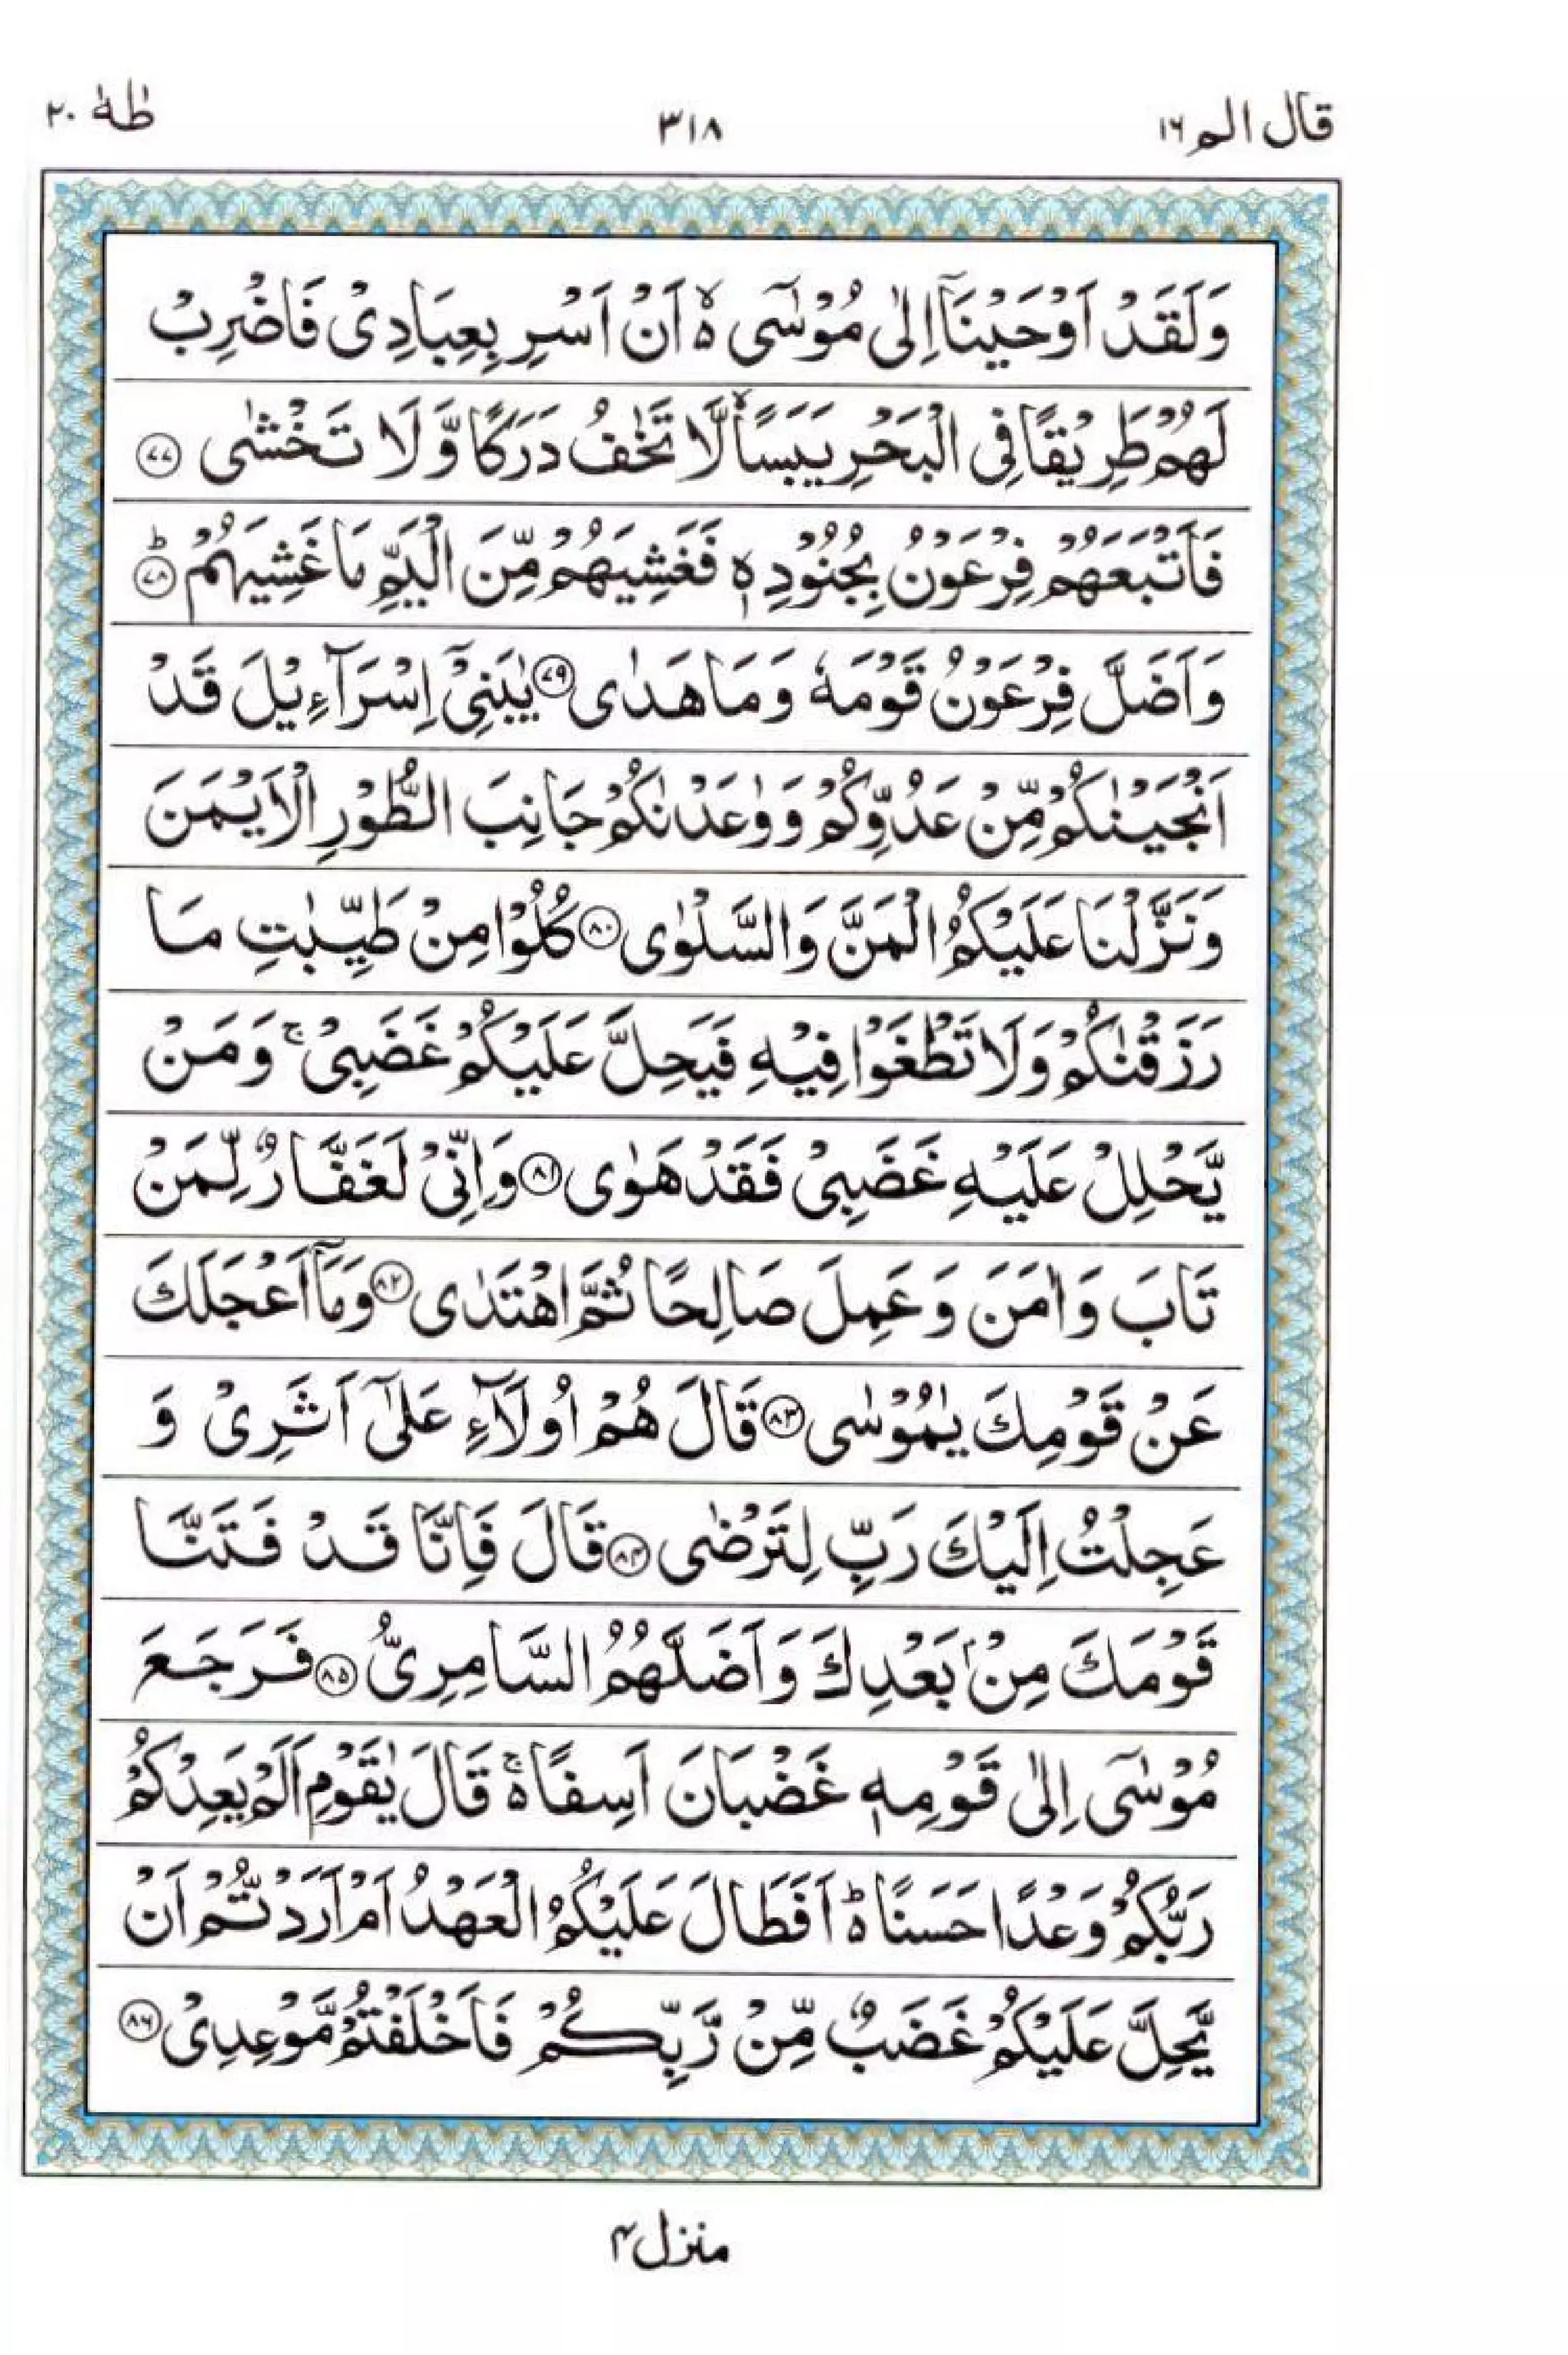 قال الم ١٦
٣١٨
طٰهٰ ٢٠
وَلَقَدْ اَوْحَيْنَآ اِلٰى مُوْسٰٓى ۙ۬ اَنْ اَسْرِ بِعِبَادِىْ فَاضْرِبْ
لَهُمْ طَرِيْقًا فِى الْبَحْرِ يَبَسًا ۙ لَّا تَخٰفُ دَرَكًا وَّ لَا تَخْشٰى ﴿٧٧﴾
فَاَتْبَعَهُمْ فِرْعَوْنُ بِجُنُوْدِهٖ فَغَشِيَهُمْ مِّنَ الْيَمِّ مَا غَشِيَهُمْ ؕ﴿٧٨﴾
وَاَضَلَّ فِرْعَوْنُ قَوْمَهٗ وَمَا هَدٰى ﴿٧٩﴾ يٰبَنِىْٓ اِسْرَآءِيْلَ قَدْ
اَنْجَيْنٰكُمْ مِّنْ عَدُوِّكُمْ وَوٰعَدْنٰكُمْ جَانِبَ الطُّوْرِ الْاَيْمَنَ
وَنَزَّلْنَا عَلَيْكُمُ الْمَنَّ وَالسَّلْوٰى ﴿٨٠﴾ كُلُوْا مِنْ طَيِّبٰتِ مَا
رَزَقْنٰكُمْ وَلَا تَطْغَوْا فِيْهِ فَيَحِلَّ عَلَيْكُمْ غَضَبِىْ ۚ وَمَنْ
يَّحْلِلْ عَلَيْهِ غَضَبِىْ فَقَدْ هَوٰى ﴿٨١﴾ وَاِنِّىْ لَغَفَّارٌ لِّمَنْ
تَابَ وَاٰمَنَ وَعَمِلَ صَالِحًا ثُمَّ اهْتَدٰى ﴿٨٢﴾ وَمَآ اَعْجَلَكَ
عَنْ قَوْمِكَ يٰمُوْسٰى ﴿٨٣﴾ قَالَ هُمْ اُولَآءِ عَلٰٓى اَثَرِىْ وَ
عَجِلْتُ اِلَيْكَ رَبِّ لِتَرْضٰى ﴿٨٤﴾ قَالَ فَاِنَّا قَدْ فَتَنَّا
قَوْمَكَ مِنْۢ بَعْدِكَ وَاَضَلَّهُمُ السَّامِرِىُّ ﴿٨٥﴾ فَرَجَعَ
مُوْسٰٓى اِلٰى قَوْمِهٖ غَضْبَانَ اَسِفًا ۬ۚ قَالَ يٰقَوْمِ اَلَمْ يَعِدْكُمْ
رَبُّكُمْ وَعْدًا حَسَنًا ۬ؕ اَفَطَالَ عَلَيْكُمُ الْعَهْدُ اَمْ اَرَدْتُّمْ اَنْ
يَّحِلَّ عَلَيْكُمْ غَضَبٌ مِّنْ رَّبِّكُمْ فَاَخْلَفْتُمْ مَّوْعِدِىْ ﴿٨٦﴾
منزل ٤